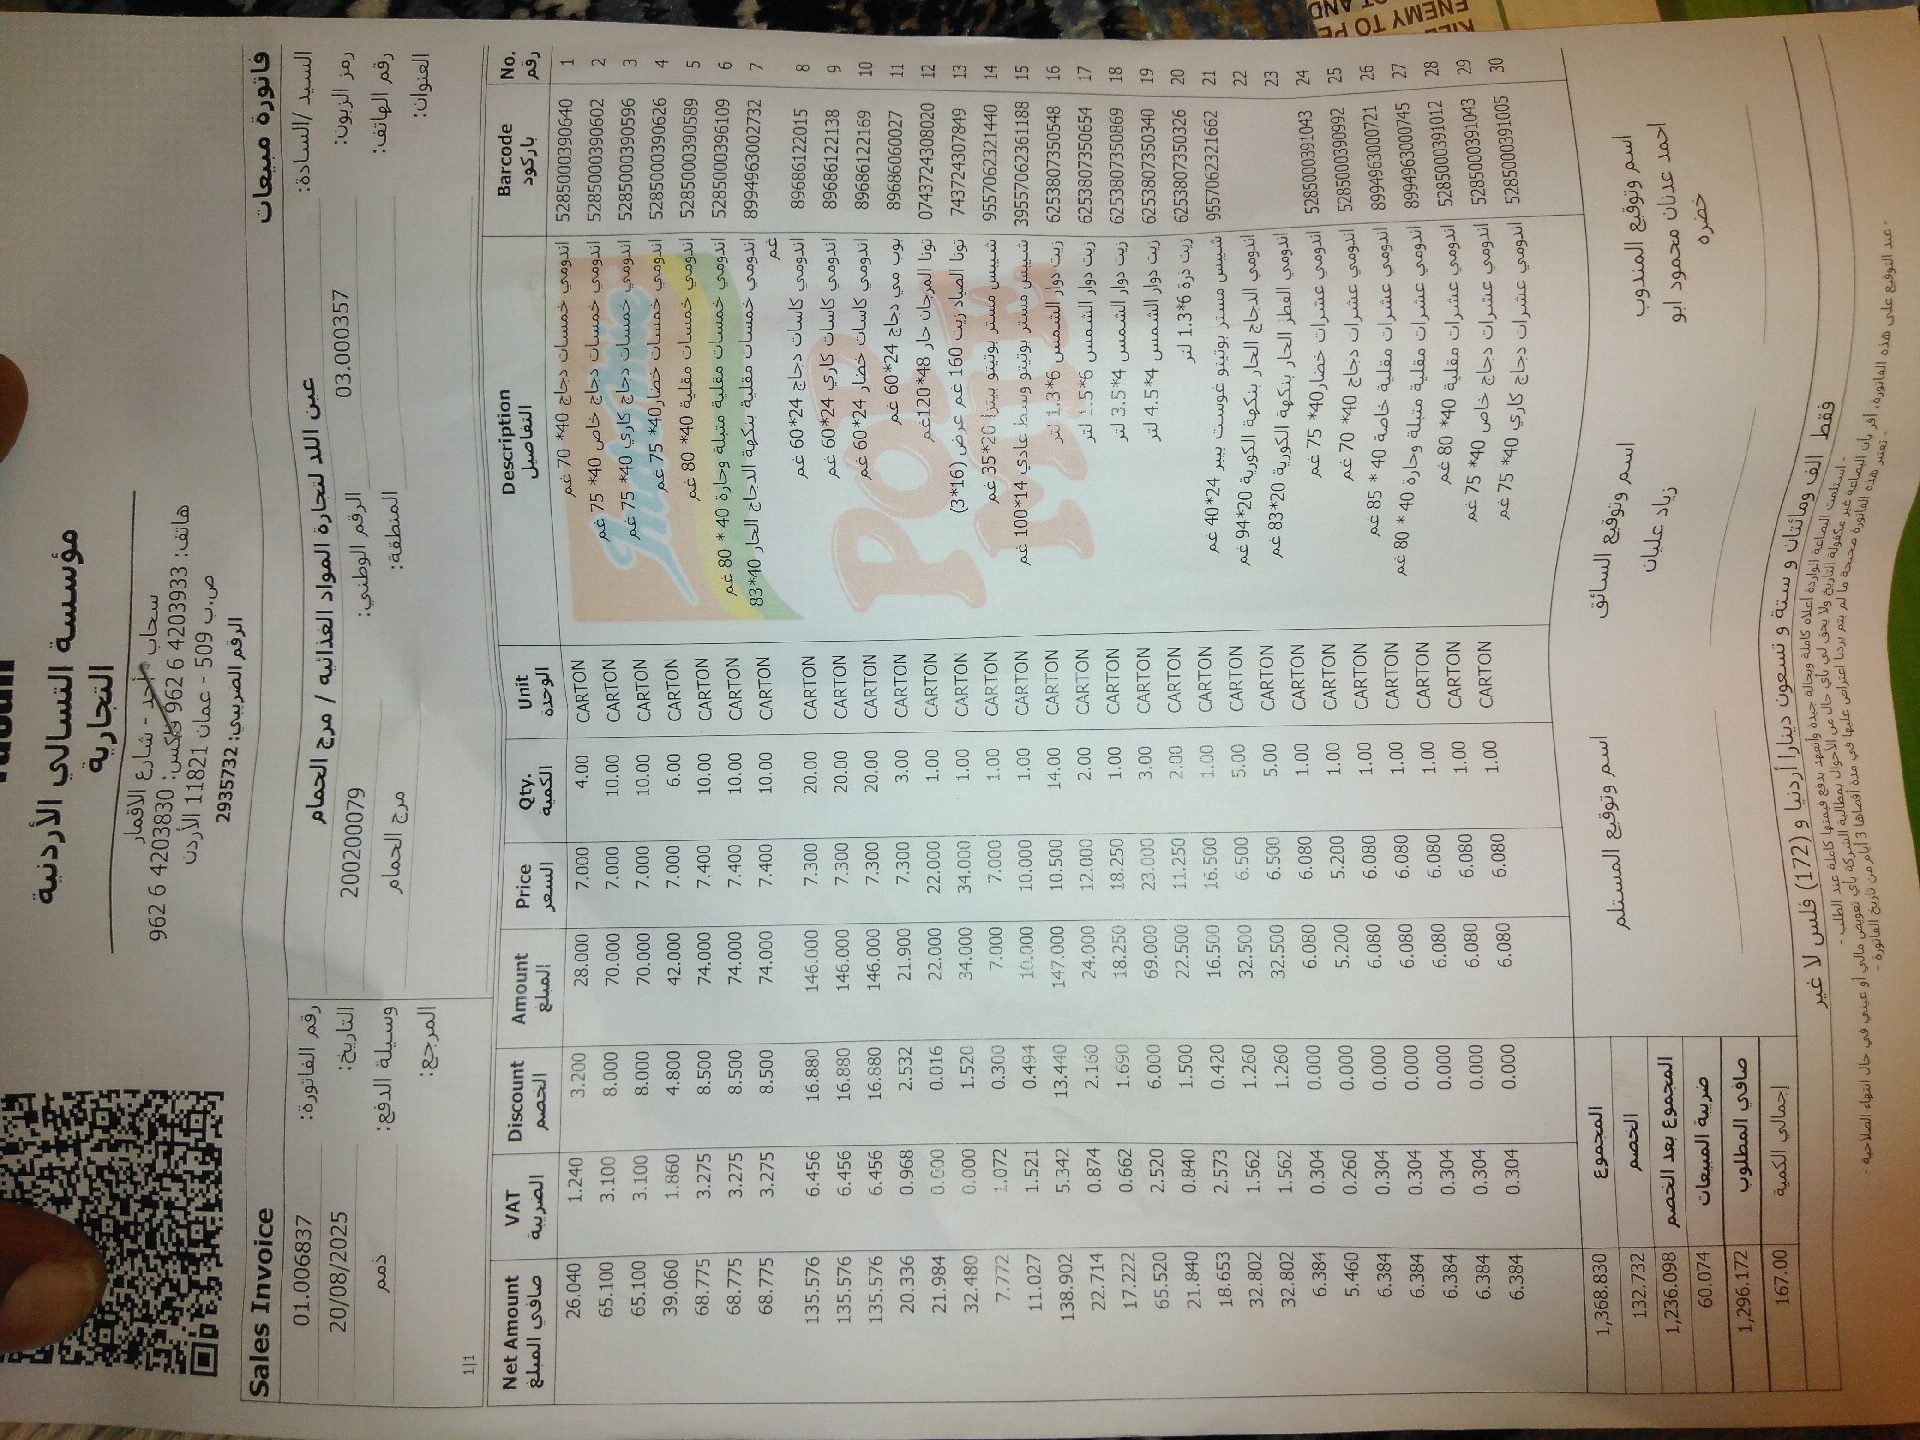 مؤسسة التسالي الأردنية
التجارية
سحاب - أحد - شارع الاقمار
هاتف: 4203933 6 962 فاكس: 4203830 6 962
ص.ب 509 - عمان 11821 الأردن
الرقم الضريبي: 2935732
Sales Invoice فاتورة مبيعات
السيد /السادة: عين اللد لتجارة المواد الغذائيه / مرج الحمام رقم الفاتورة: 01.006837
رمز الزبون: 03.000357 الرقم الوطني: 200200079 التاريخ: 20/08/2025
رقم الهاتف: المنطقة: مرج الحمام وسيلة الدفع: ذمم
العنوان: المرجع:
1|1
Net Amount VAT Discount Amount Price Qty. Unit Description Barcode No.
صافي المبلغ الضريبة الخصم المبلغ السعر الكمية الوحدة التفاصيل باركود رقم
26.040 1.240 3.200 28.000 7.000 4.00 CARTON اندومي خمسات دجاج 40* 70 غم 5285000390640 1
65.100 3.100 8.000 70.000 7.000 10.00 CARTON اندومي خمسات دجاج خاص 40* 75 غم 5285000390602 2
65.100 3.100 8.000 70.000 7.000 10.00 CARTON اندومي خمسات دجاج كاري 40* 75 غم 5285000390596 3
39.060 1.860 4.800 42.000 7.000 6.00 CARTON اندومي خمسات خضار40* 75 غم 5285000390626 4
68.775 3.275 8.500 74.000 7.400 10.00 CARTON اندومي خمسات مقلية 40* 80 غم 5285000390589 5
68.775 3.275 8.500 74.000 7.400 10.00 CARTON اندومي خمسات مقلية متبلة وحارة 40 * 80 غم 5285000396109 6
68.775 3.275 8.500 74.000 7.400 10.00 CARTON اندومي خمسات مقلية بنكهة الدجاج الحار 40*83 غم 8994963002732 7
135.576 6.456 16.880 146.000 7.300 20.00 CARTON اندومي كاسات دجاج 24*60 غم 89686122015 8
135.576 6.456 16.880 146.000 7.300 20.00 CARTON اندومي كاسات كاري 24*60 غم 89686122138 9
135.576 6.456 16.880 146.000 7.300 20.00 CARTON اندومي كاسات خضار 24*60 غم 89686122169 10
20.336 0.968 2.532 21.900 7.300 3.00 CARTON بوب مي دجاج 24*60 غم 89686060027 11
21.984 0.000 0.016 22.000 22.000 1.00 CARTON تونا المرجان حار 48*120غم 0743724308020 12
32.480 0.000 1.520 34.000 34.000 1.00 CARTON تونا الصياد زيت 160 غم عرض (16*3) 743724307849 13
7.772 1.072 0.300 7.000 7.000 1.00 CARTON شيبس مستر بوتيتو بيتزا 20*35 غم 9557062321440 14
11.027 1.521 0.494 10.000 10.000 1.00 CARTON شيبس مستر بوتيتو وسط عادي 14*100 غم 39557062361188 15
138.902 5.342 13.440 147.000 10.500 14.00 CARTON زيت دوار الشمس 6*1.3 لتر 6253807350548 16
22.714 0.874 2.160 24.000 12.000 2.00 CARTON زيت دوار الشمس 6*1.5 لتر 6253807350654 17
17.222 0.662 1.690 18.250 18.250 1.00 CARTON زيت دوار الشمس 4*3.5 لتر 6253807350869 18
65.520 2.520 6.000 69.000 23.000 3.00 CARTON زيت دوار الشمس 4*4.5 لتر 6253807350340 19
21.840 0.840 1.500 22.500 11.250 2.00 CARTON زيت ذرة 6*1.3 لتر 6253807350326 20
18.653 2.573 0.420 16.500 16.500 1.00 CARTON شيبس مستر بوتيتو غوست بيبر 24*40 غم 9557062321662 21
32.802 1.562 1.260 32.500 6.500 5.00 CARTON اندومي الدجاج الحار بنكهة الكورية 20*94 غم 22
32.802 1.562 1.260 32.500 6.500 5.00 CARTON اندومي الفطر الحار بنكهة الكورية 20*83 غم 23
6.384 0.304 0.000 6.080 6.080 1.00 CARTON اندومي عشرات خضار40* 75 غم 5285000391043 24
5.460 0.260 0.000 5.200 5.200 1.00 CARTON اندومي عشرات دجاج 40* 70 غم 5285000390992 25
6.384 0.304 0.000 6.080 6.080 1.00 CARTON اندومي عشرات مقلية خاصة 40 * 85 غم 8994963000721 26
6.384 0.304 0.000 6.080 6.080 1.00 CARTON اندومي عشرات مقلية متبلة وحارة 40 * 80 غم 8994963000745 27
6.384 0.304 0.000 6.080 6.080 1.00 CARTON اندومي عشرات مقلية 40* 80 غم 5285000391012 28
6.384 0.304 0.000 6.080 6.080 1.00 CARTON اندومي عشرات دجاج خاص 40* 75 غم 5285000391043 29
6.384 0.304 0.000 6.080 6.080 1.00 CARTON اندومي عشرات دجاج كاري 40* 75 غم 5285000391005 30
Indomie
POP
MIE
المجموع 1,368.830
الخصم 132.732
المجموع بعد الخصم 1,236.098
ضريبة المبيعات 60.074
صافي المطلوب 1,296.172
إجمالي الكمية 167.00
اسم وتوقيع المندوب اسم وتوقيع السائق اسم وتوقيع المستلم
احمد عدنان محمود ابو خضره
زياد عليان
فقط الف ومائتان و ستة و تسعون دينارا أردنيا و (172) فلس لا غير
- استلمت البضاعة الواردة أعلاه كاملة وبحالة جيدة وأتعهد بدفع قيمتها كاملة عند الطلب -
- عند التوقيع على هذه الفاتورة، أقر بأن البضاعة غير مكفولة التاريخ ولا يحق لي بأي حال من الأحوال بمطالبة الشركة بأي تعويض مالي أو عيني في حال انتهاء الصلاحية -
- تعتبر هذه الفاتورة صحيحة ما لم يتم يردنا اعتراض عليها في مدة أقصاها 3 أيام من تاريخ الفاتورة -
ENEMY TO PE